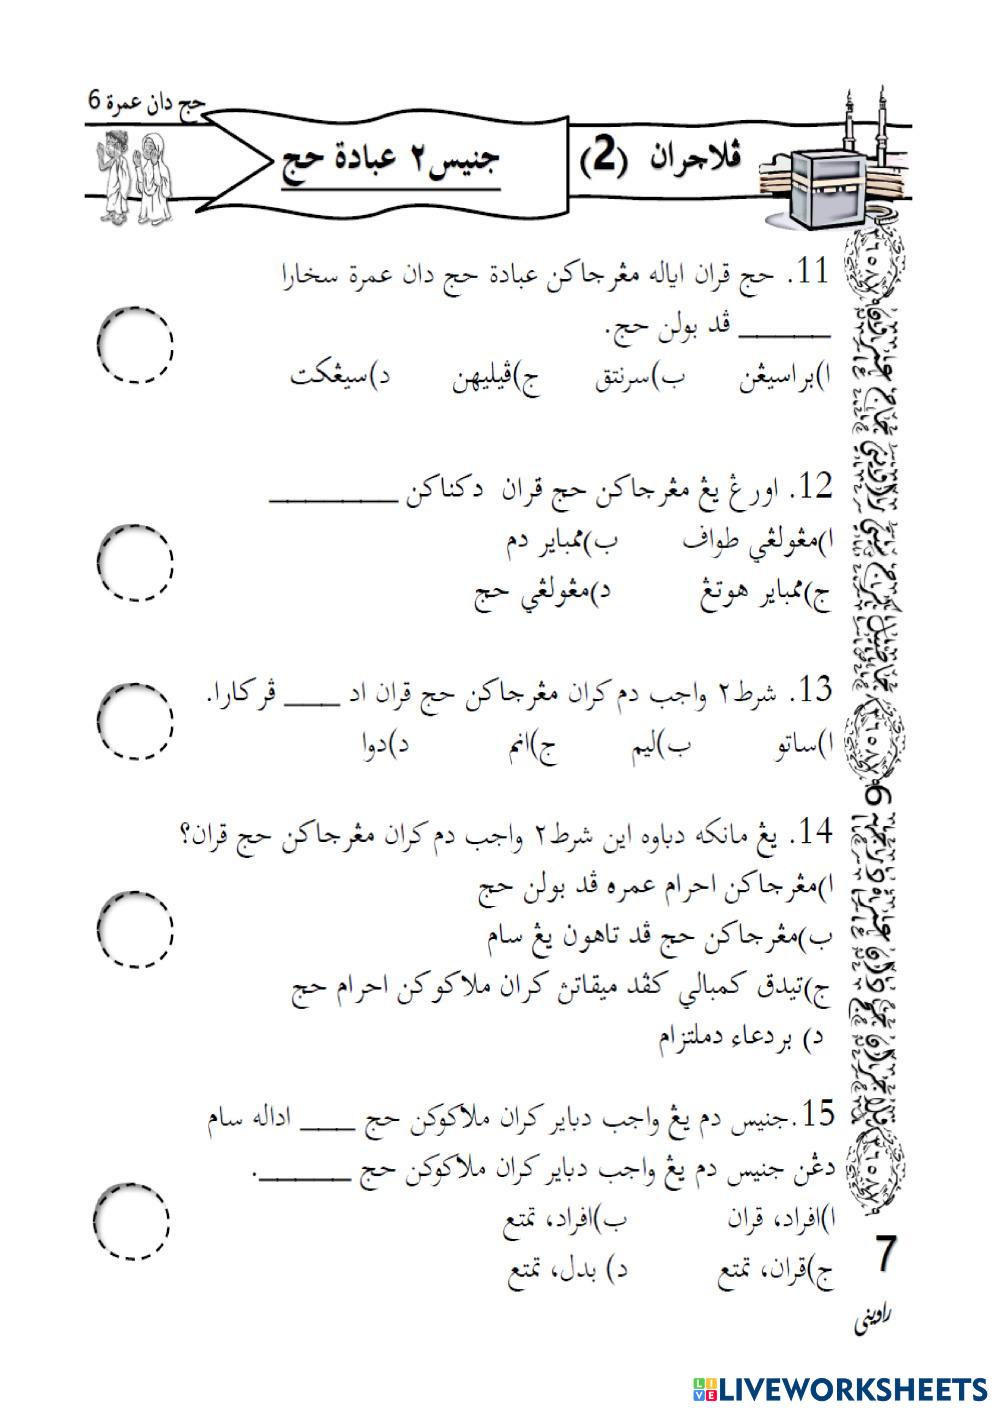 حج دان عمرة 6
ڤلاجران (2)
جنيس٢ عبادة حج
11. حج قران اياله مڠرجاكن عبادة حج دان عمرة سخارا
______ ڤد بولن حج.
ا)براسيڠن ب)سرنتق ج)ڤيليهن د)سيڠكت
12. اورڠ يڠ مڠرجاكن حج قران دكناكن ________
ا)مڠولڠي طواف ب)ممباير دم
ج)ممباير هوتڠ د)مڠولڠي حج
13. شرط٢ واجب دم كران مڠرجاكن حج قران اد ____ ڤركارا.
ا)ساتو ب)ليم ج)انم د)دوا
14. يڠ مانكه دباوه اين شرط٢ واجب دم كران مڠرجاكن حج قران؟
ا)مڠرجاكن احرام عمره ڤد بولن حج
ب)مڠرجاكن حج ڤد تاهون يڠ سام
ج)تيدق كمبالي كڤد ميقاتڽ كران ملاكوكن احرام حج
د) بردعاء دملتزام
15.جنيس دم يڠ واجب دباير كران ملاكوكن حج ____ اداله سام
دڠن جنيس دم يڠ واجب دباير كران ملاكوكن حج ______.
ا)افراد، قران ب)افراد، تمتع
ج)قران، تمتع د) بدل، تمتع
6
7
راويني
LIVEWORKSHEETS